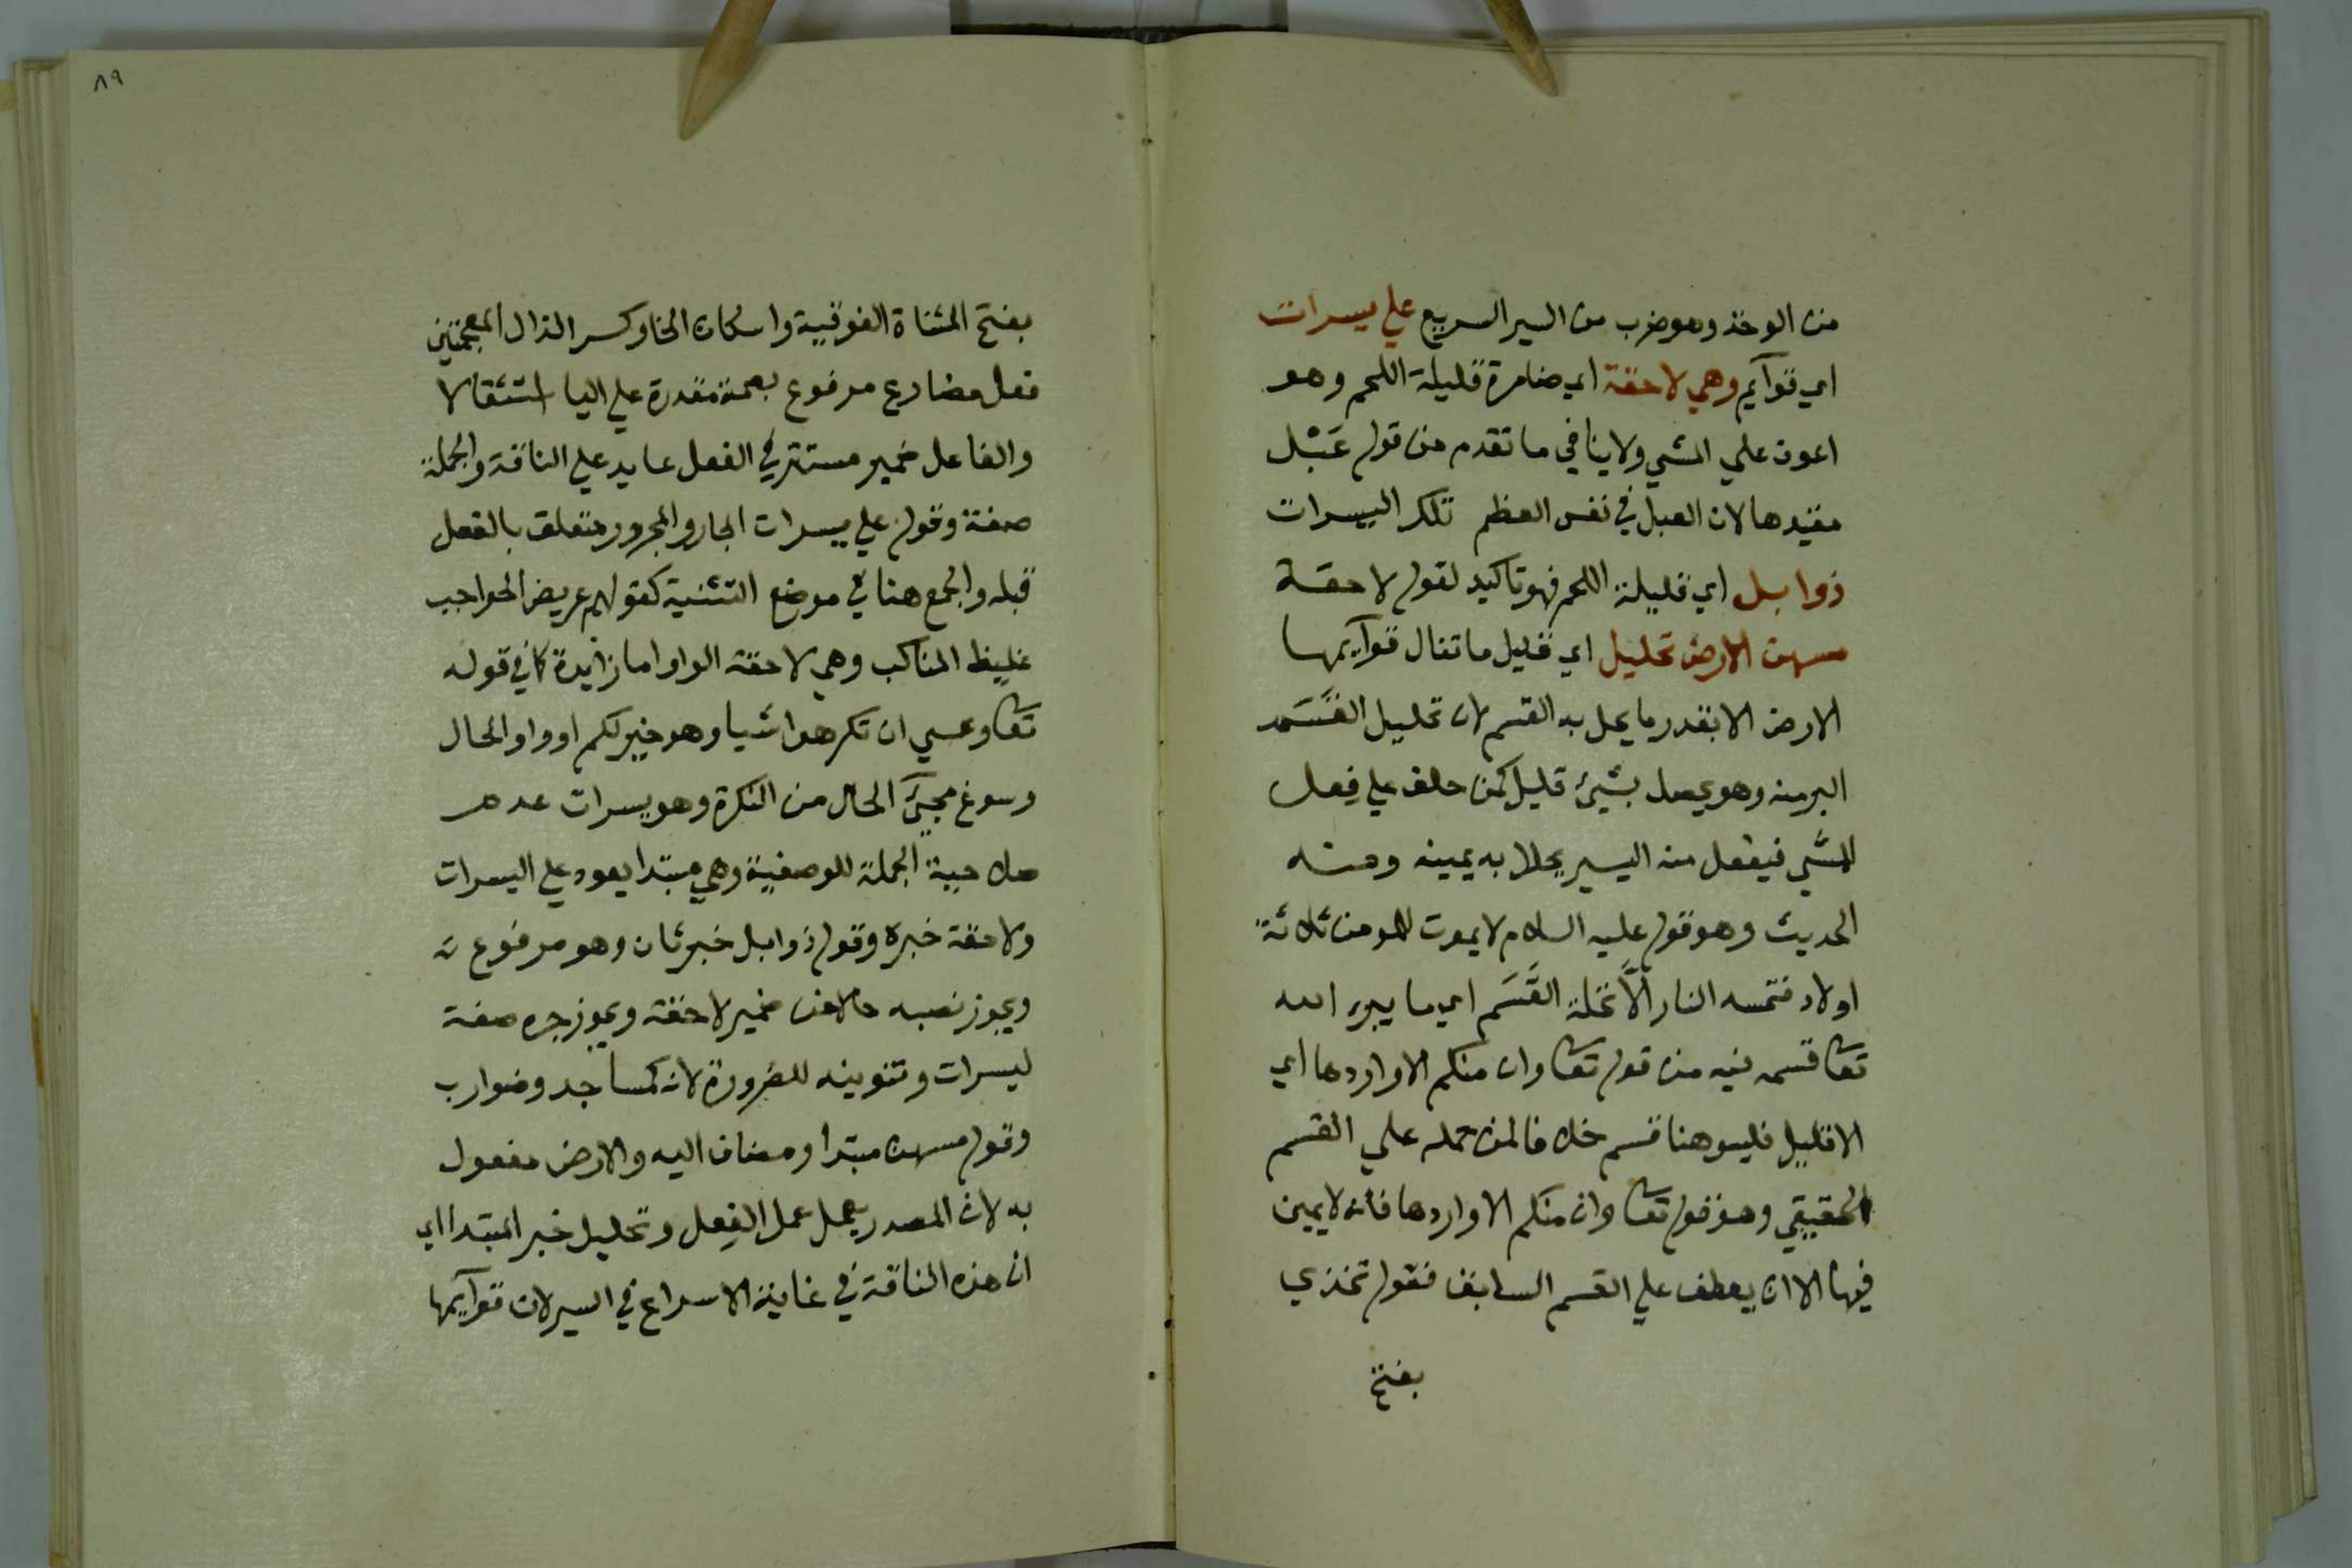 من الوخد وهو ضرب من السير السريع علي يسرات
اي قوآيم وهي لاحقة اي ضامرة قليلة اللحم وهو
اعون علي المشي ولا ينافي ما تقدم من قوله عَبْل
مقيدها لان العبل في نفس العظم تلك اليسرات
ذوابل اي قليلة اللحم فهو تاكيد لقوله لاحقة
مسهن الارض تحليل اي قليل ما تنال قوآيمها
الارض الا بقدر ما يحل به القسم لان تحليل القَسَم
البر منه وهو يحصل بشيئ قليل كمن حلف علي فِعل
الشي فيفعل منه اليسير يحلل به يمينه ومنه
الحديث وهو قوله عليه السلام لا يموت للمومن ثلاثة
اولاد فتمسه النار الَّا تحلة القَسَم اي ما يبر الله
تعا قسمه فيه من قوله تعا وان منكم الا واردها اي
الا قليل فليس هنا قسم خلافا لمن حمله علي القسم
الحقيقي وهو قوله تعا وان منكم الا واردها فانه لا يمين
فيها الا ان يعطف علي القسم السابق فقوله تخذي
بفتح
٨٩
بفتح المثناة الفوقية واسكان الخا وكسر الذال المعجمتين
فعل مضارع مرفوع بضمة مقدرة علي اليا استثقالا
والفاعل ضمير مستتر في الفعل عايد علي الناقة والجملة
صفة وقوله علي يسرات الجار والمجرور متعلق بالفعل
قبله والجمع هنا في موضع التثنية كقولهم عريض الحواجب
غليظ المناكب وهي لاحقة الواو اما زايدة كما في قوله
تعا وعسي ان تكرهوا شيا وهو خير لكم او واو الحال
وسوغ مجيَّ الحال من النكرة وهو يسرات عدم
صلاحية الجملة للوصفية وهي مبتدا يعود علي اليسرات
ولاحقة خبره وقوله ذوابل خبر ثان وهو مرفوع
ويجوز نصبه حالا من ضمير لاحقة ويجوز جره صفة
ليسرات وتنوينه للضرورة لانه كمساجد وضوارب
وقوله مسهن مبتدا ومضاف اليه والارض مفعول
به لان المصدر يعمل عمل الفِعل وتحليل خبر المبتدا اي
ان هذه الناقة في غاية الاسراع في السير لان قوآيمها